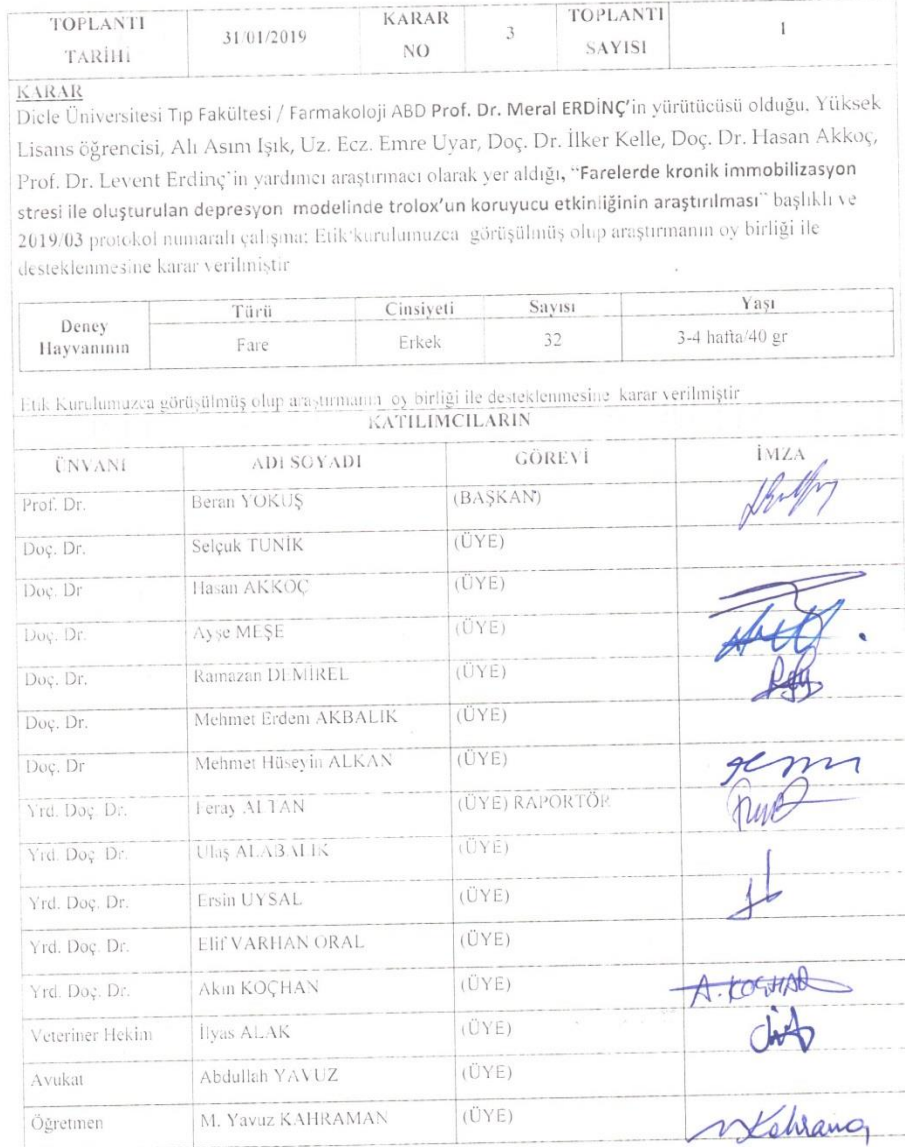 TOPLANTI TARİHİ 31/01/2019 KARAR NO 3 TOPLANTI SAYISI 1
KARAR
Dicle Üniversitesi Tıp Fakültesi / Farmakoloji ABD Prof. Dr. Meral ERDİNÇ'in yürütücüsü olduğu, Yüksek
Lisans öğrencisi, Alı Asım Işık, Uz. Ecz. Emre Uyar, Doç. Dr. İlker Kelle, Doç. Dr. Hasan Akkoç,
Prof. Dr. Levent Erdinç'in yardımcı araştırmacı olarak yer aldığı, "Farelerde kronik immobilizasyon
stresi ile oluşturulan depresyon modelinde trolox'un koruyucu etkinliğinin araştırılması" başlıklı ve
2019/03 protokol numaralı çalışma; Etik kurulumuzca görüşülmüş olup araştırmanın oy birliği ile
desteklenmesine karar verilmiştir
Deney Hayvanının
Türü Cinsiyeti Sayısı Yaşı
Fare Erkek 32 3-4 hafta/40 gr
Etik Kurulumuzca görüşülmüş olup araştırmanın oy birliği ile desteklenmesine karar verilmiştir
KATILIMCILARIN
ÜNVANI ADI SOYADI GÖREVİ İMZA
Prof. Dr. Beran YOKUŞ (BAŞKAN)
Doç. Dr. Selçuk TUNİK (ÜYE)
Doç. Dr Hasan AKKOÇ (ÜYE)
Doç. Dr. Ayşe MEŞE (ÜYE)
Doç. Dr. Ramazan DEMİREL (ÜYE)
Doç. Dr. Mehmet Erdem AKBALIK (ÜYE)
Doç. Dr Mehmet Hüseyin ALKAN (ÜYE)
Yrd. Doç. Dr. Feray ALTAN (ÜYE) RAPORTÖR
Yrd. Doç. Dr. Ulaş ALABALIK (ÜYE)
Yrd. Doç. Dr. Ersin UYSAL (ÜYE)
Yrd. Doç. Dr. Elif VARHAN ORAL (ÜYE)
Yrd. Doç. Dr. Akın KOÇHAN (ÜYE) A. KOÇHAN
Veteriner Hekim İlyas ALAK (ÜYE)
Avukat Abdullah YAVUZ (ÜYE)
Öğretmen M. Yavuz KAHRAMAN (ÜYE)